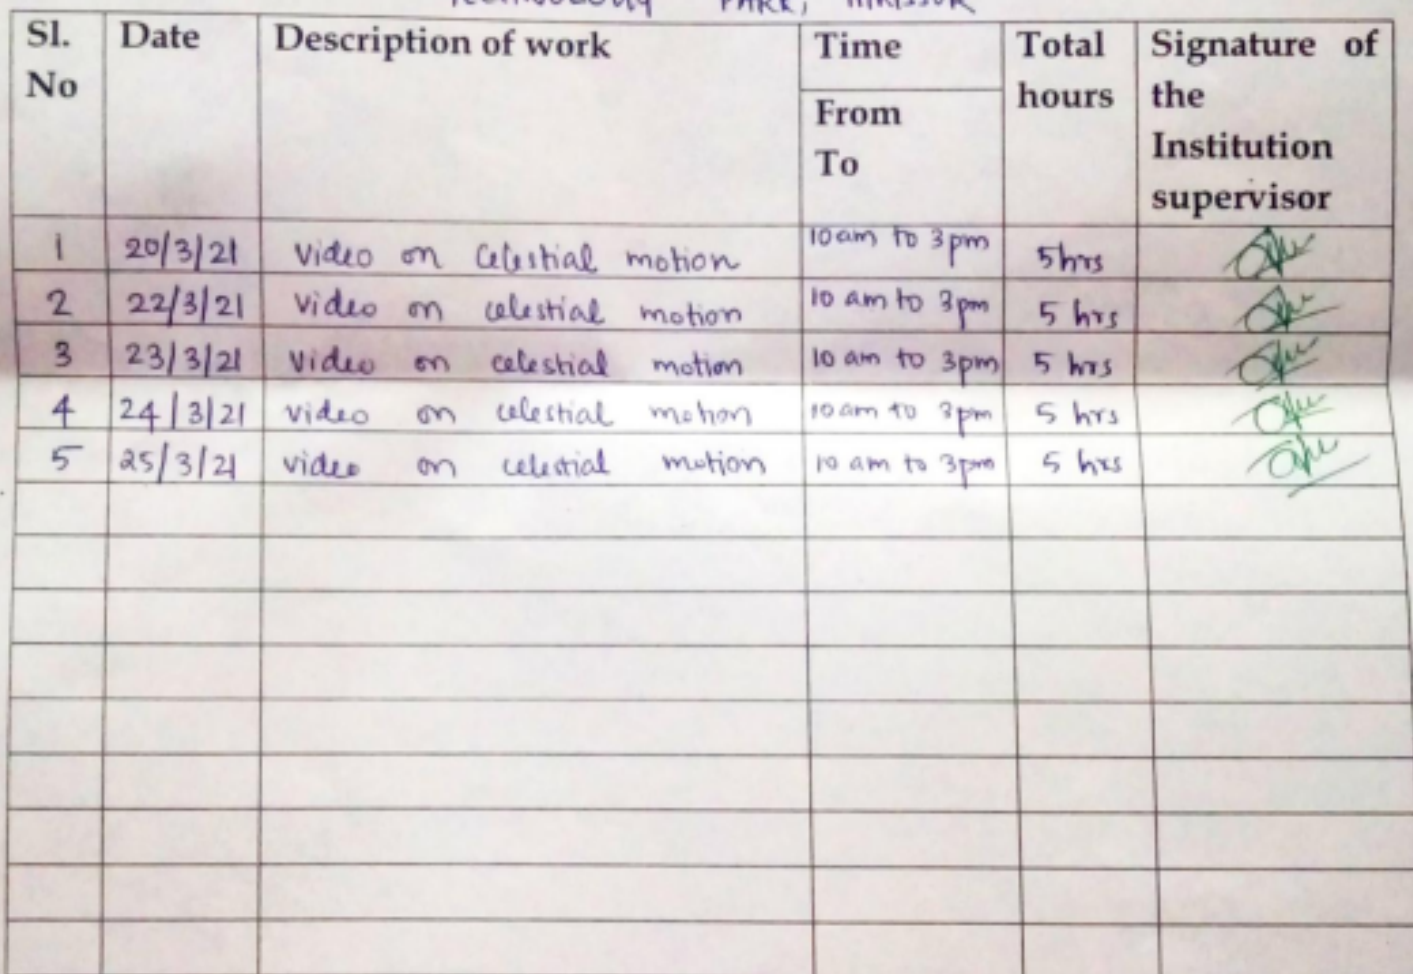 TECHNOLOGY PARK, THRISSUR
Sl. No Date Description of work Time From To Total hours Signature of the Institution supervisor
1 20/3/21 Video on Celestial motion 10am to 3pm 5hrs
2 22/3/21 Video on celestial motion 10 am to 3pm 5 hrs
3 23/3/21 Video on celestial motion 10 am to 3pm 5 hrs
4 24/3/21 video on celestial motion 10am to 3pm 5 hrs
5 25/3/21 video on celestial motion 10 am to 3pm 5 hrs